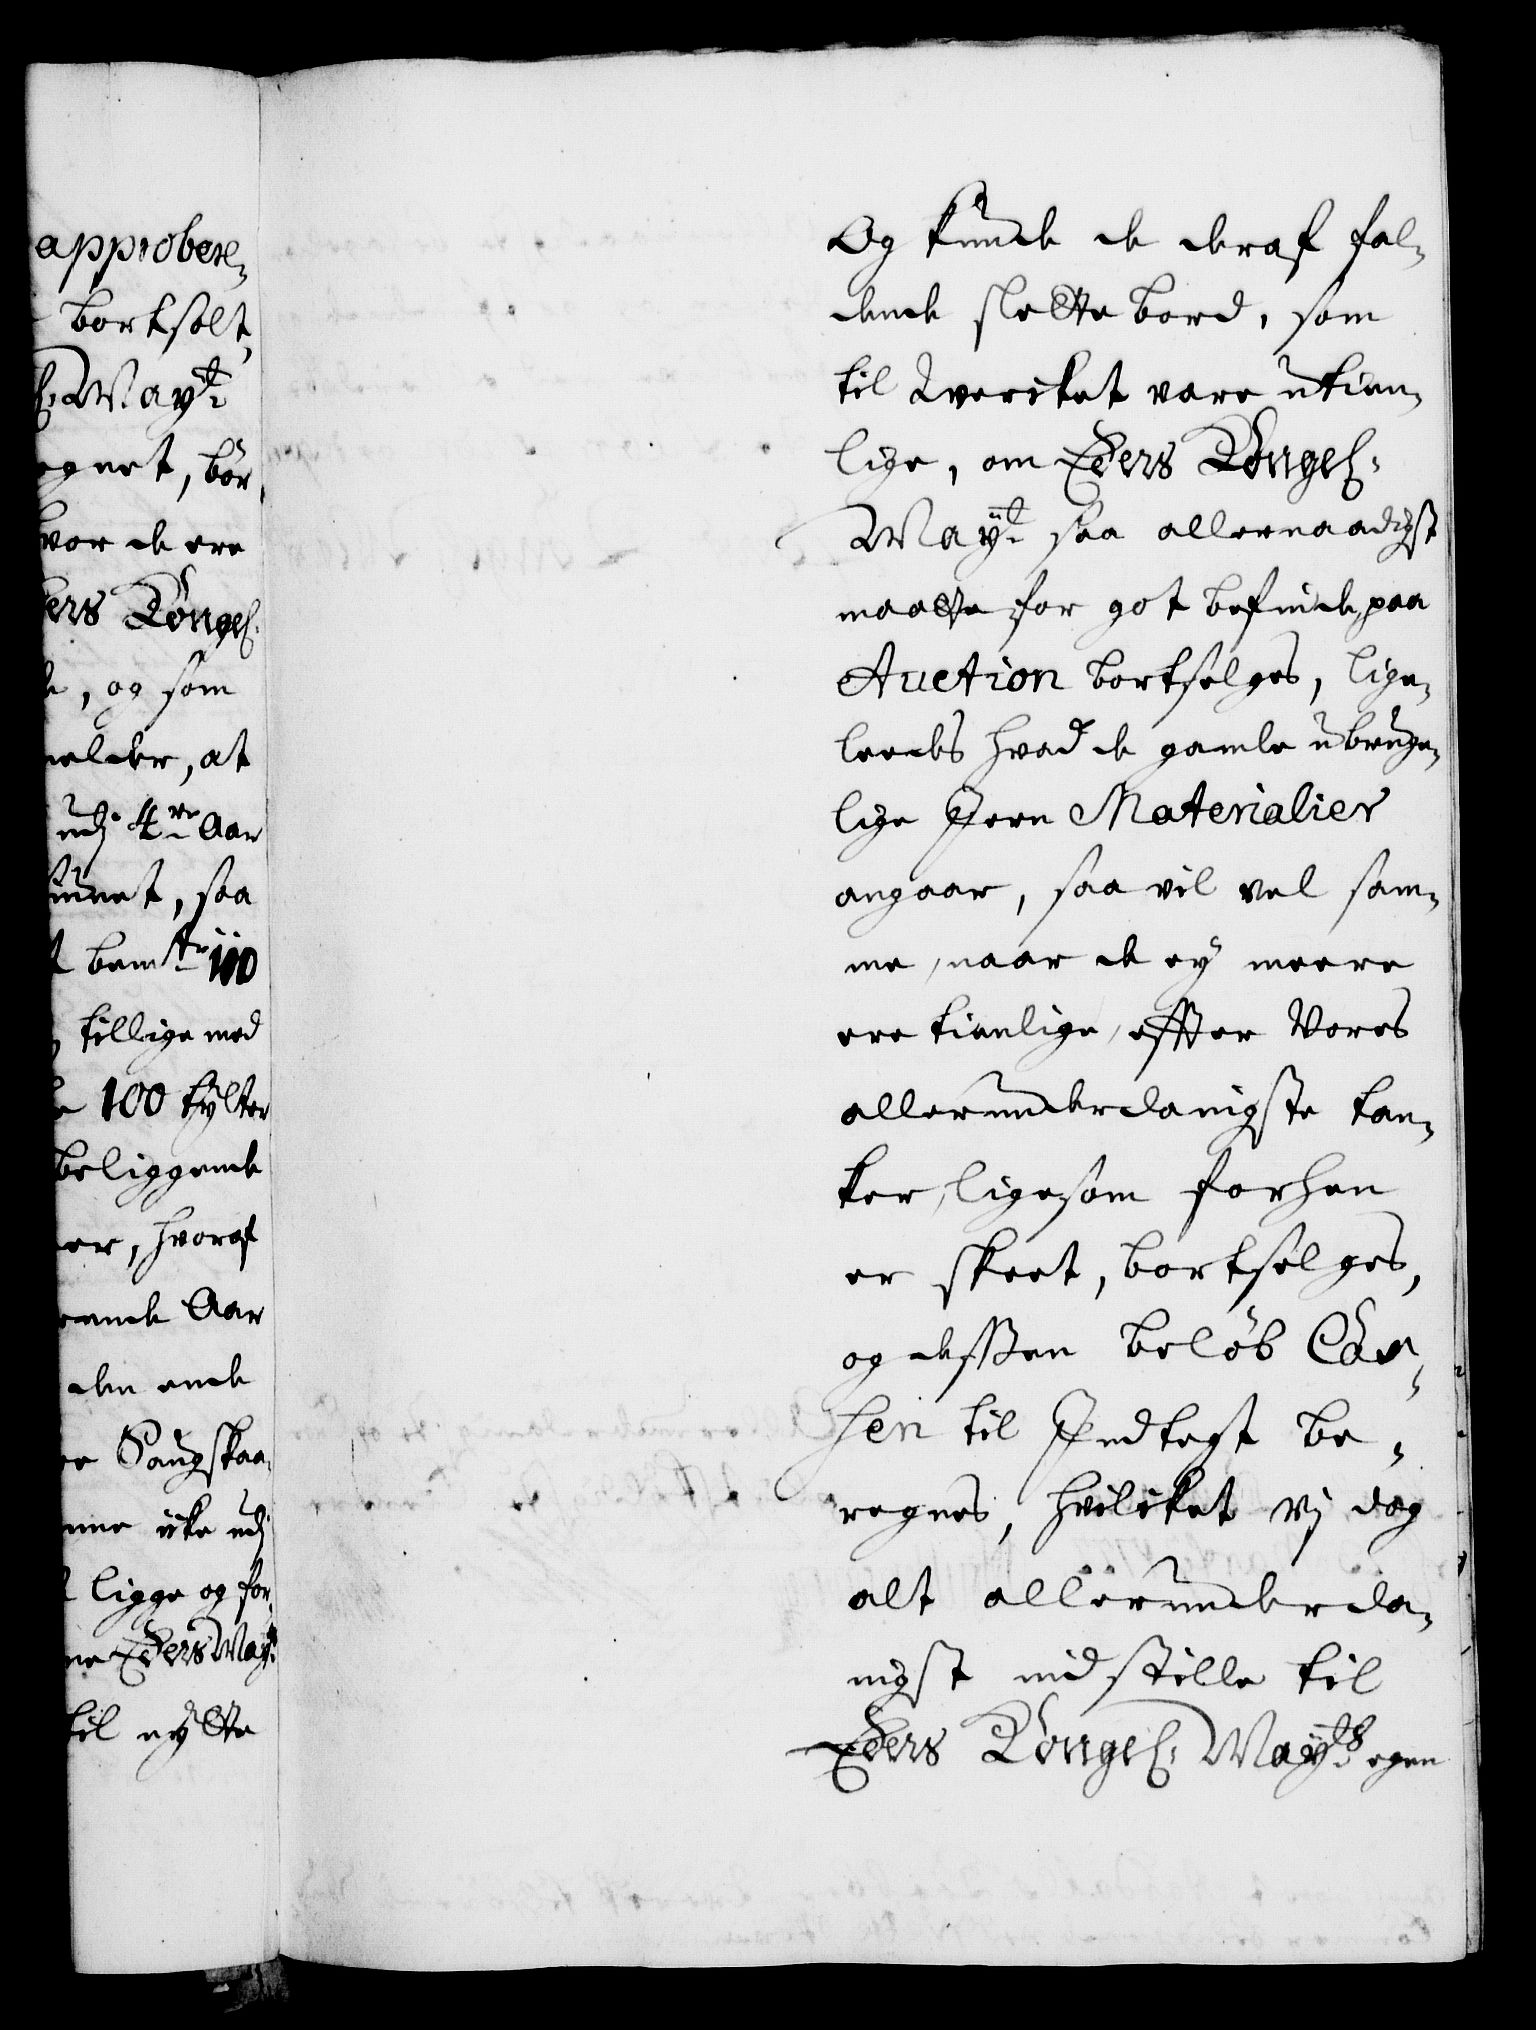 approbere-
bortsolt,
l: Mayt:
egnet, bör,
hvor de ere
Eders Köngel:
e, og som
melder, at
udj 4re Aar
saa
bemte 110
tillige med
100 tylter
beliggende
er, hvoraf
Aar
den ende
Saugskaa-
icke udj
ligge og for-
Eders Mayt:
til nytte
Og kunde de deraf fal-
dende slette bord, som
til Wercket vare utien-
lige, om Eders Köngel:
Mayt: saa allernaadigst
maatte for got befinde, paa
Auction bortselges, lige-
leedes hvad de gamle ubruge-
lige Jern Materialier
angaar, saa vil vel sam-
me, naar de ey meere
ere tienlige, effter Vores
allerunderdanigste tan-
ker, ligesom forhen
er skeet, bortselges,
og dessen beløb Cas-
sen til Indtegt be-
regnes, hvilcket vj dog
alt allerunderda-
nigst indstille til
Eders Köngel: Mayts: egen